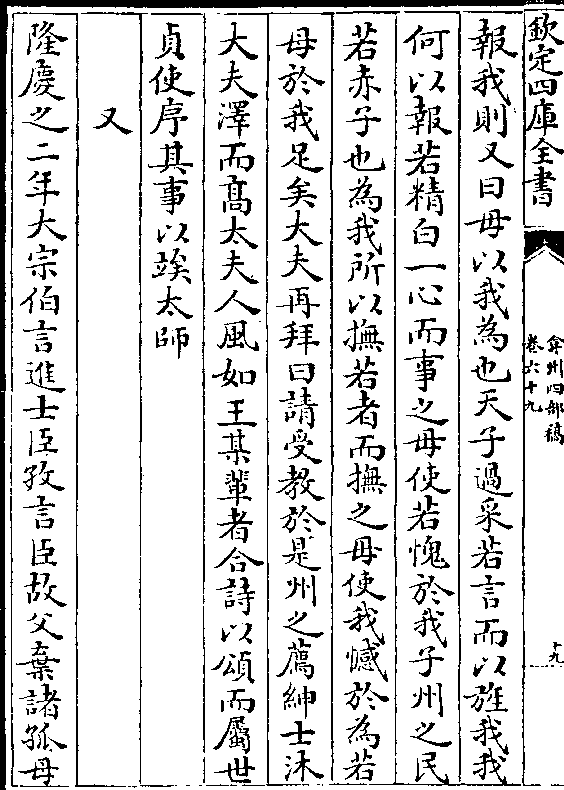 欽定四庫全書
弇州四部稿
卷六十九
十九
報我則又曰毋以我為也天子過采若言而以旌我我
何以報若精白一心而事之毋使若愧於我子州之民
若赤子也為我所以撫若者而撫之毋使我憾於為若
母於我足矣大夫再拜曰請受教於是州之薦紳士沐
大夫澤而髙太夫人風如王某輩者合詩以頌而屬世
貞使序其事以竢太師
又
隆慶之二年大宗伯言進士臣孜言臣故父棄諸孤母